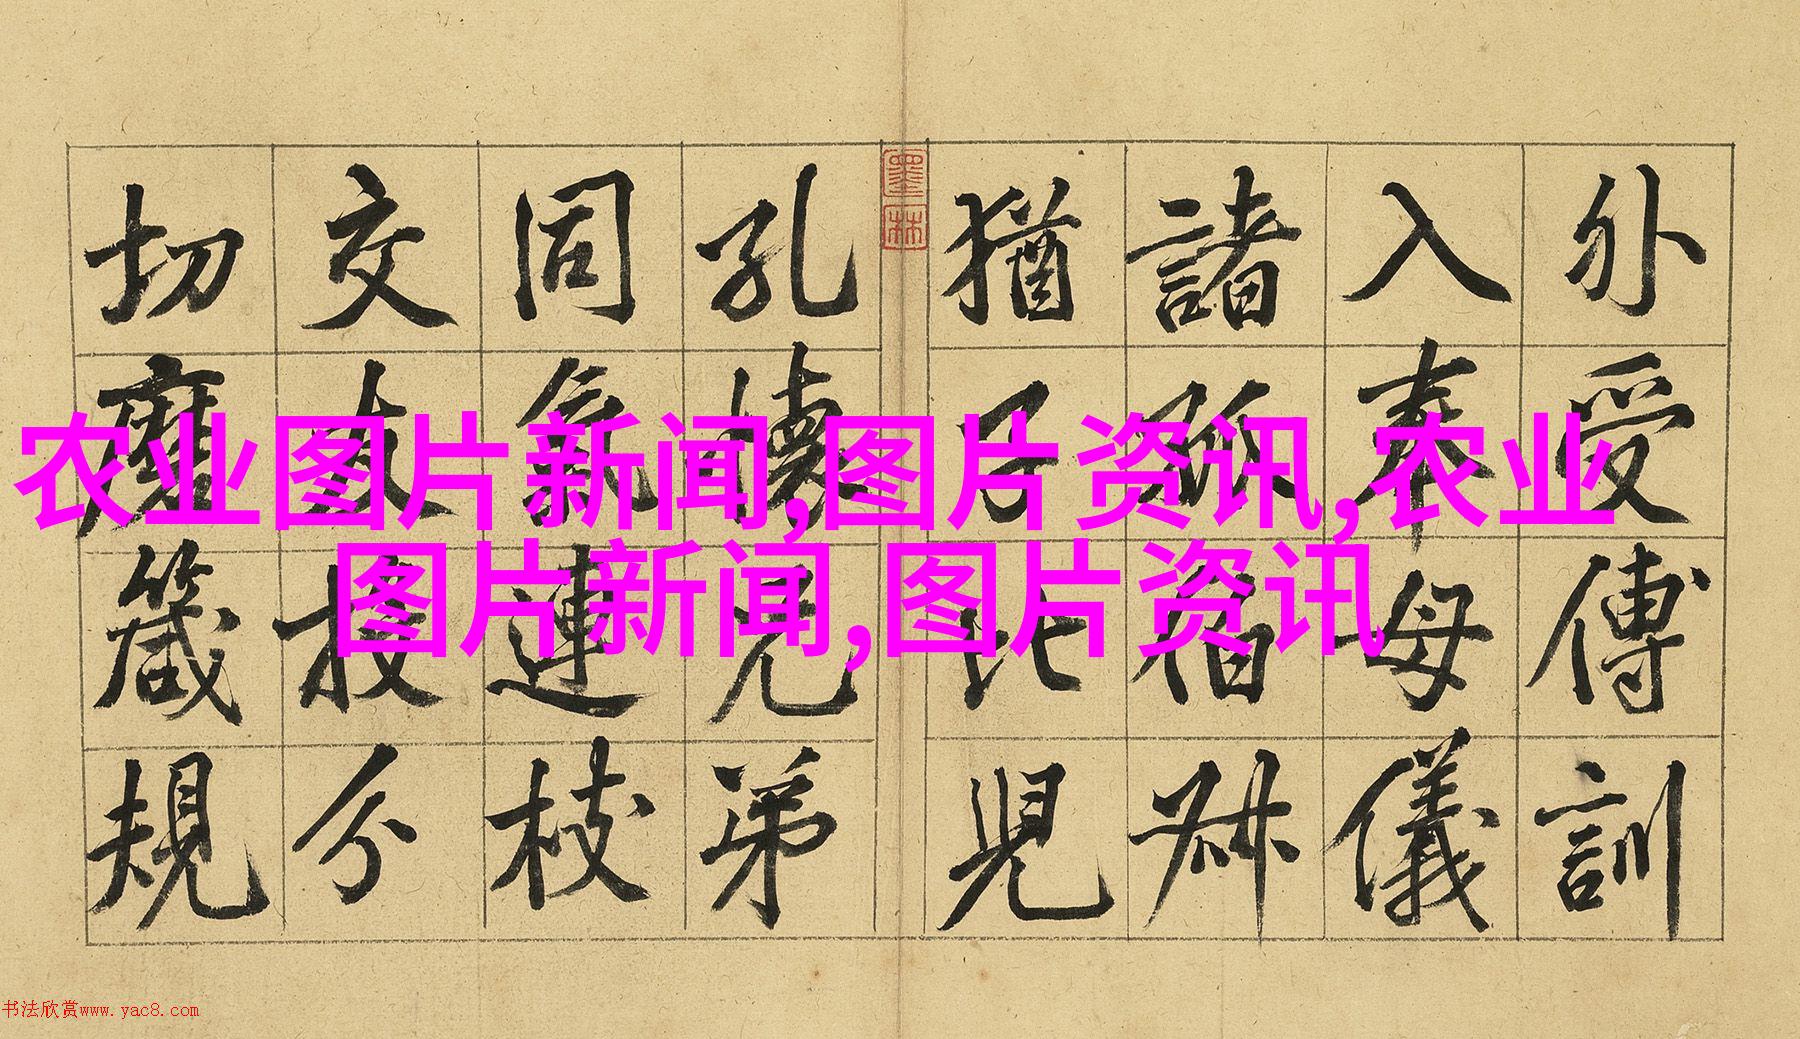 外受傅訓
入奉母儀
諸姑伯叔
猶子比兒
墨林
孔懷兄弟
同氣連枝
交友投分
切磨箴規
农业图片新闻,图片资讯,农业
图片新闻,图片资讯
书法欣赏www.yac8.com